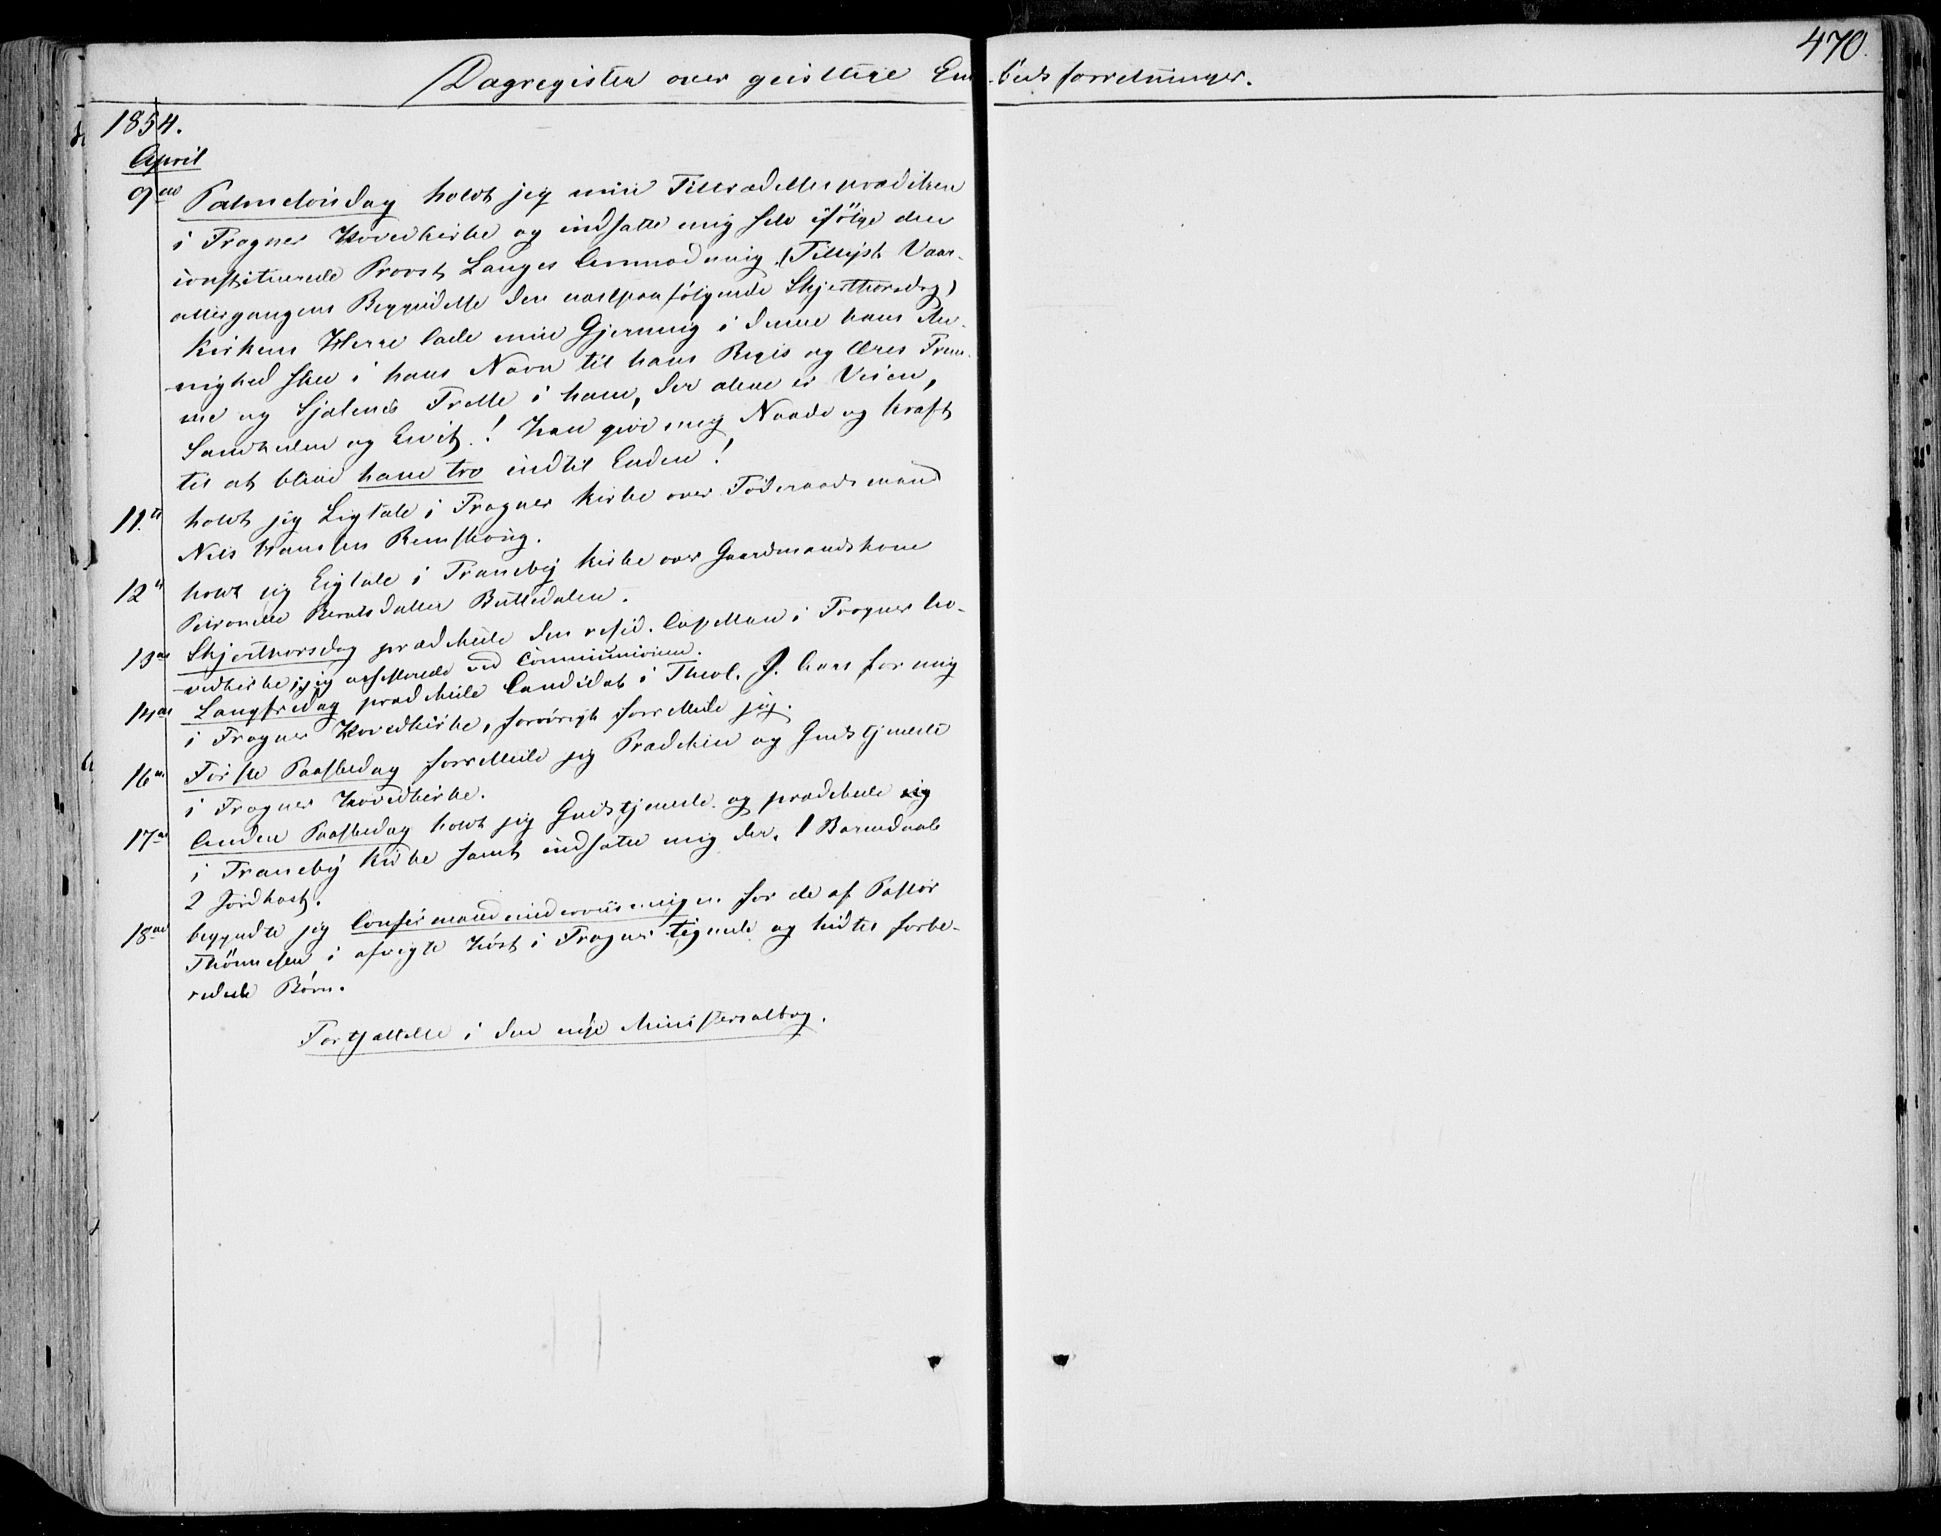 470.
Dagregister over geistlige Embedsforretninger.
1854.
April
9de Palmesöndag holdt jeg min Tiltrædelsesprædiken
i Frogner Hovedkirke og indsatte mig selv ifölge den
constituerede Provst Langes Anmodning. (Tillyst Vaar-
altergangens Begyndelse den næstpaafölgende Skjerthorsdag)
Kirkens Herre lade min Gjerning i denne hans Me-
nighed skee i hans Navn til hans Riges og Æres Frem-
me og Sjælenes Frelse i ham, der alene er Veien,
Sandheden og Livet! Han give mig Naade og Kraft
til at blive ham tro indtil Enden!
11te holdt jeg Ligtale i Frogner Kirke over Föderaadsmand
Nils Hansen
12te holdt jeg Ligtale i Traneby Kirke over Gaardmandskone
Petronelle
13de Skjerthorsdag prædikede den resid. Capellan i Frogner Ho-
vedkirke; jeg assisterede ved Communionen.
14de Langfredag prædikede Candidat i Theol. J. Aars for mig
i Frogner Hovedkirke, forövrigt forrettede jeg.
16de Förste Paaskedag forrettede jeg Prædiken og Gudstjeneste
i Frogner Hovedkirke.
17de Anden Paaskedag holdt jeg Gudstjeneste og prædikede jeg
i Traneby Kirke samt indsatte mig der. 1 Barnedaab
2 Jordkast.
18de begyndte jeg Confirmandundervisningen for de af Pastor
Thönnesen i afvigte Höst i Frogner tegnede og hidtil forbe-
redede Börn.
Fortsættelse i den nye Ministerialbog.